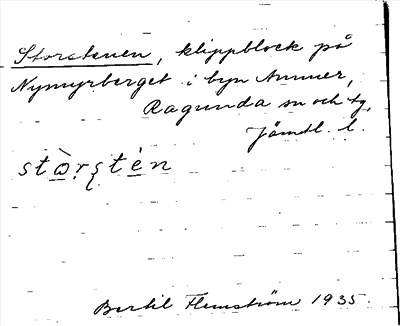 Storstenen, klippblock på
Nymyrberget i byn Ammer,
Ragunda sn och tg,
Jämtl. l.
stɷ̀rs̨tèn
Bertil Flemström 1935.